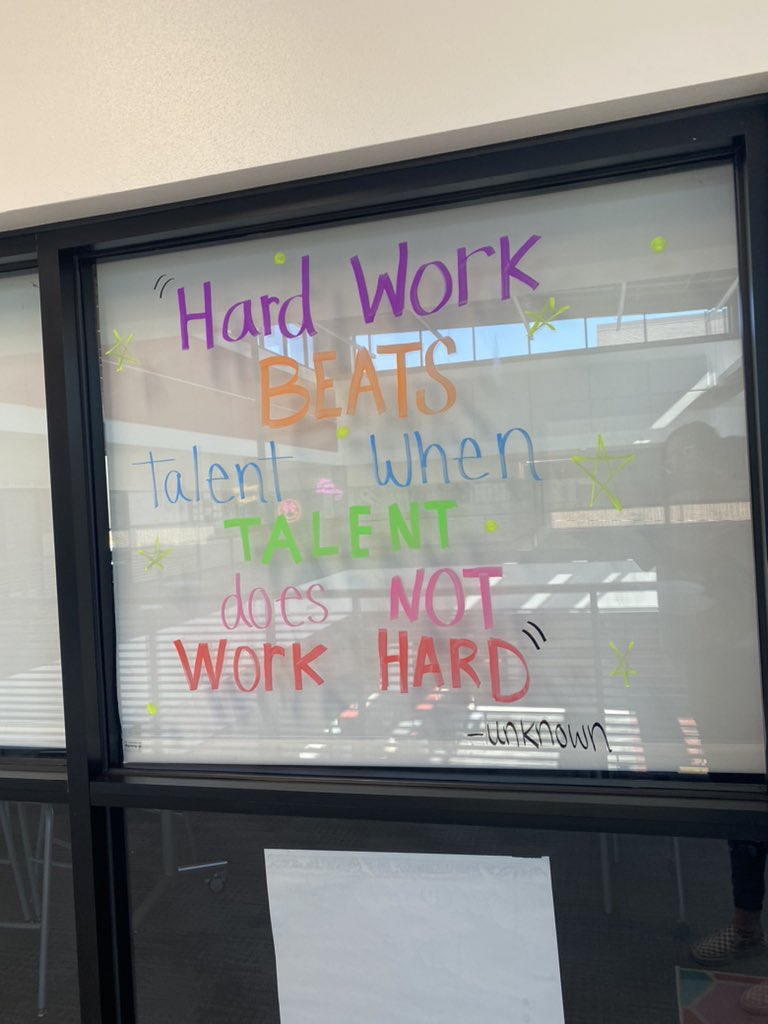 "Hard Work
BEATS
talent When
TALENT
does NOT
WORK HARD"
-unknown